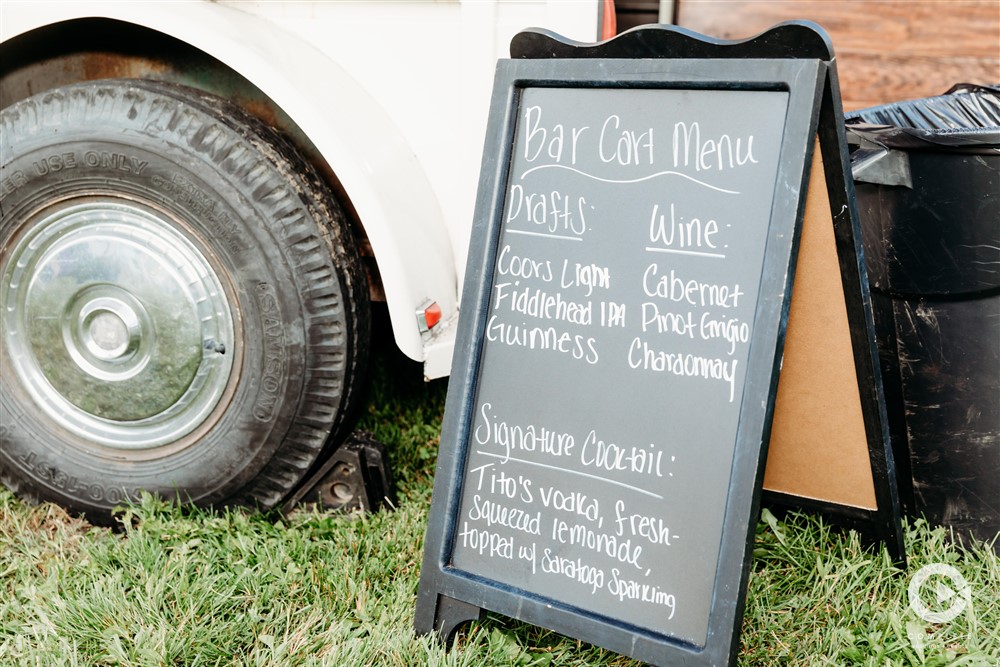 Bar Cart Menu
Drafts:
Coors Light
Fiddlehead IPA
Guinness
Wine:
Cabernet
Pinot Grigio
Chardonnay
Signature Cocktail:
Tito's vodka, fresh-
squeezed lemonade,
topped w/ Saratoga Sparkling
USE ONLY